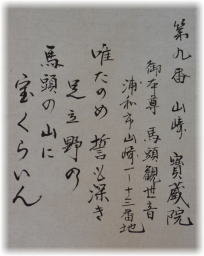 第九番 山崎 寳蔵院
御本尊 馬頭観世音
浦和市山崎一ー十三番地
唯たのめ 誓も深き
足立野の
馬頭の山に
宝くらいん